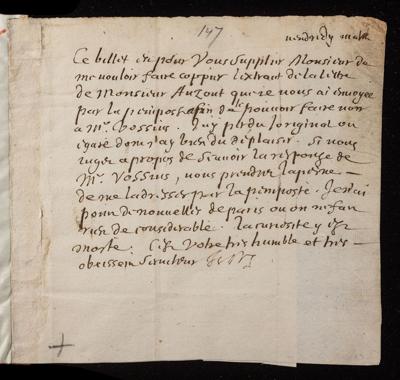 147
vendredy matin
Ce billet est pour Vous Supplier Monsieur de
me vouloir faire coppier l'extrait de la lettre
de Monsieur Auzout que je vous ai envoyée
par la p'emposte afin de pouvoir faire voir
à Mr. Vossius. J'ay perdu l'original ou
egaré dont j'ay bien du deplaisir. Si vous
jugez a propos de scavoir la response de
Mr. Vossius, vous prendrez la peine
de me l'adresser par la p'emposte. Je n'ai
point de nouvelles de paris ou on ne fait
rien de considerable. La curiosité y est
morte. C'est Votre tres humble et tres
obeissant Serviteur